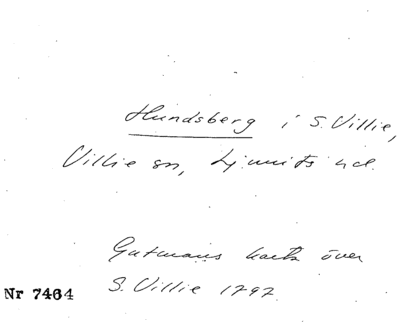 Hundsberg i S. Villie,
Villie sn, Ljunits hd.
Gutmans karta över
Nr 7464 S. Villie 1797